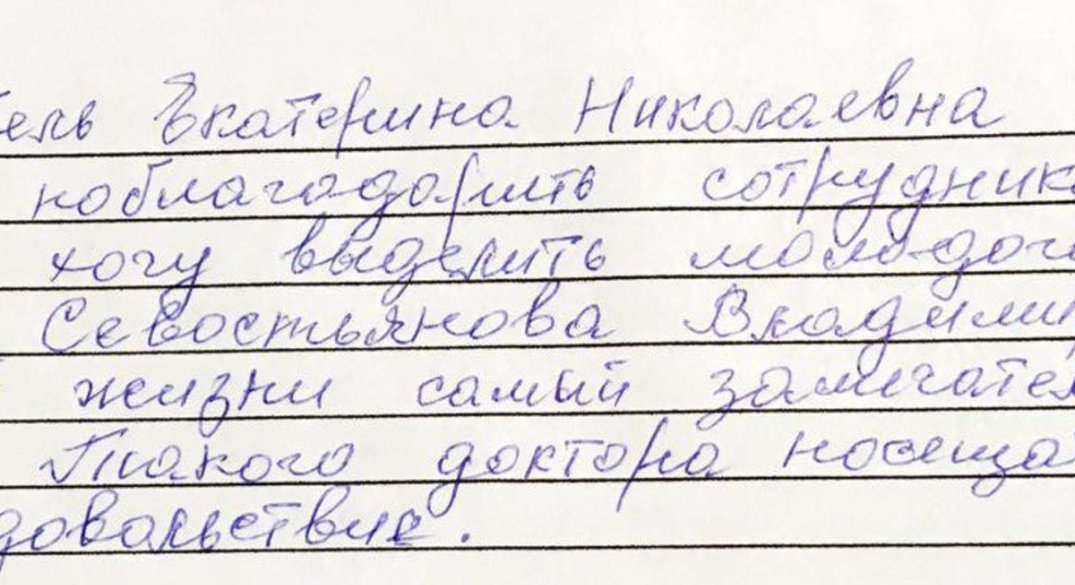 ель Екатерина Николаевна
поблагодарить сотрудник
хочу выделить молодого
Севостьянова Владими
жизни самый замечател
Такого доктора посеща
довольствие.